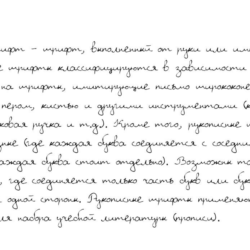 ифт – шрифт, выполненный от руки или им
е шрифты классифицируются в зависимости
на шрифты, имитирующие письмо ширококоне
пером, кистью и другими инструментами (к
ковая ручка и т.д.). Кроме того, рукописные и
ные (где каждая буква соединяется с соседни
аждая буква стоит отдельно). Возможны то
, где соединяется только часть букв или бук
одной сторон. Рукописные шрифты применяют
ля набора учебной литературы (прописи).